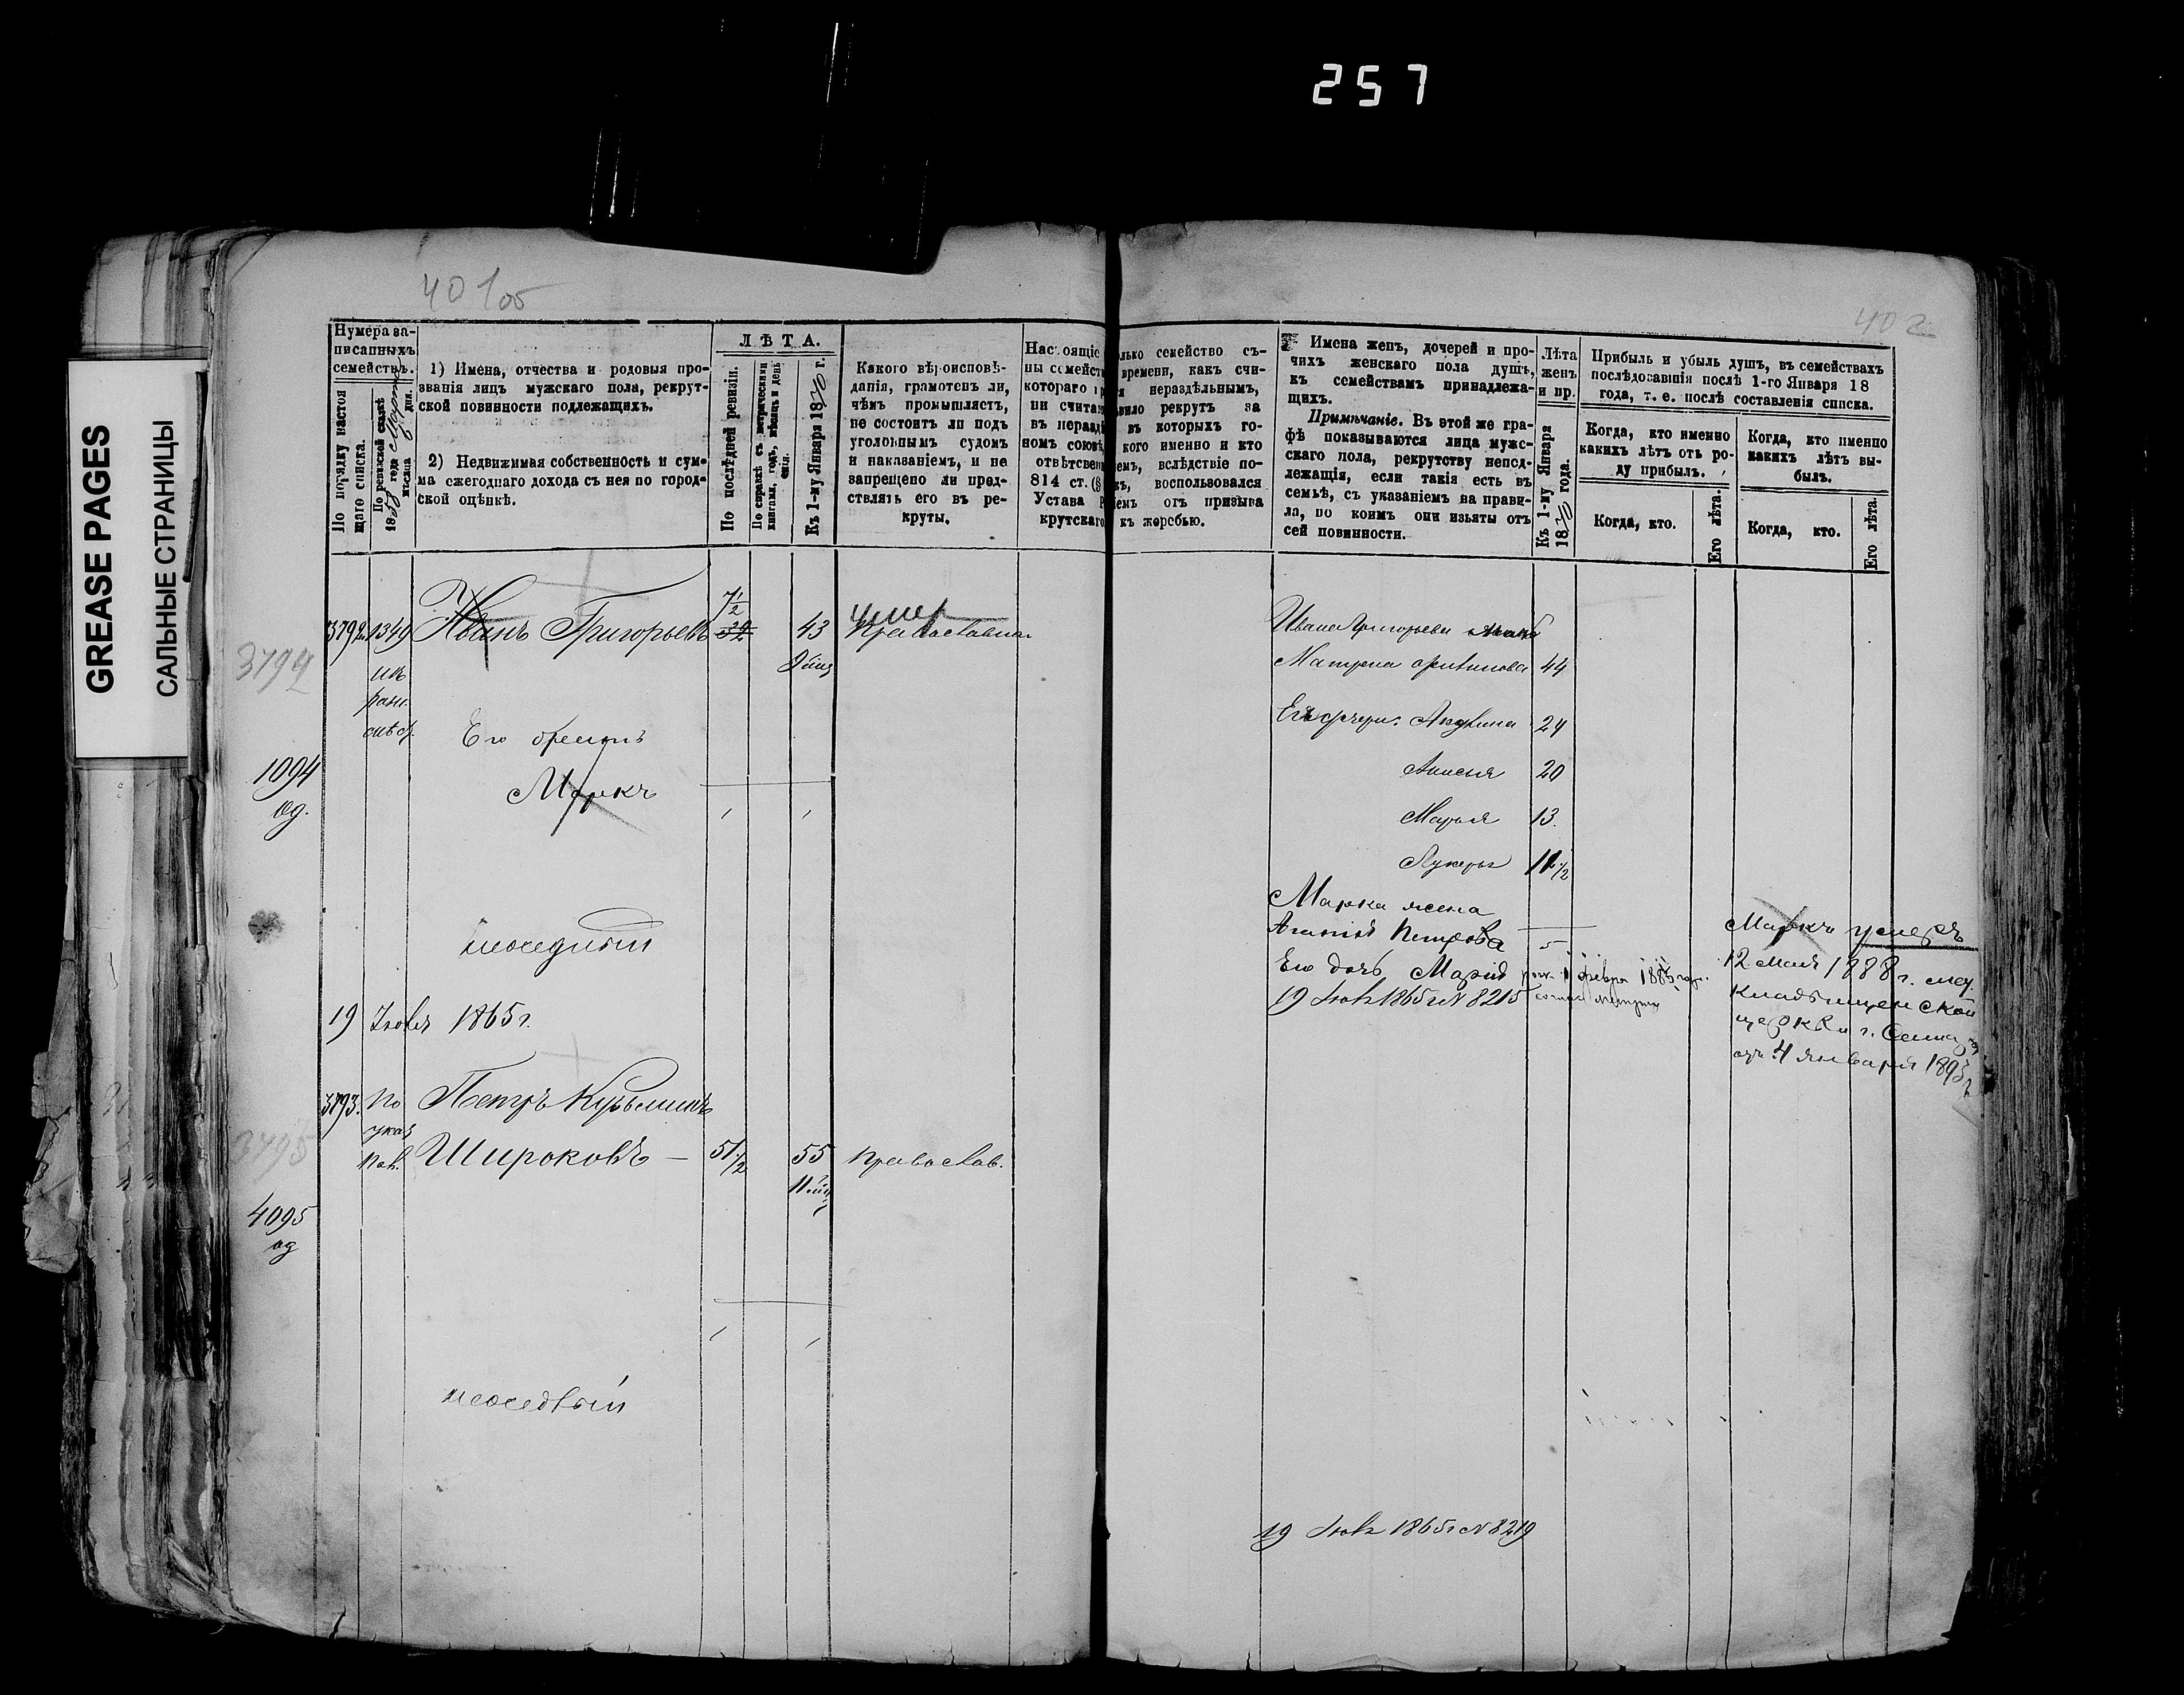 257
GREASE PAGES
САЛЬНЫЕ СТРАНИЦЫ
401об
402
Нумера за-
писанныхъ
семействъ.
По порядку настоя
щаго списка.
По ревизской сказкѣ
1858 года Марта
мѣсяца 6 дня.
1) Имена, отчества и родовыя про-
званія лицъ мужскаго пола, рекрут-
ской повинности подлежащихъ.
2) Недвижимая собственность и сум-
ма ежегоднаго дохода съ нея по город-
ской оцѣнкѣ.
ЛѢТА.
По послѣдней ревизіи.
По справкѣ съ метрическими
книгами, годъ, мѣсяцъ и день
Къ 1-му Января 1870 г.
Какого вѣроисповѣ-
данія, грамотенъ ли,
чѣмъ промышляетъ,
не состоитъ ли подъ
уголовнымъ судомъ
и наказаніемъ, и не
запрещено ли пред-
ствлять его въ ре-
круты.
Настоящіе
ны семейст
котораго
ни счита
въ неразд
номъ союз
отвѣтствен
814 ст. (§
Устава Р
крутскаго
лько семейство съ-
времени, какъ счи-
я нераздѣльнымъ,
вило рекрутъ за
въ которыхъ го-
кого именно и кто
емъ, вслѣдствіе по-
къ, воспользовался
емъ отъ призыва
къ жеребью.
Имена женъ, дочерей и про-
чихъ женскаго пола душъ,
къ семействамъ принадлежа-
щихъ.
Примѣчаніе. Въ этой же гра-
фѣ показываются лица мужс-
скаго пола, рекрутству непод-
лежащія, если такія есть въ
семьѣ, съ указаніемъ на прави-
ла, по коимъ они изъяты отъ
сей повинности.
Лѣта
женъ
и пр.
Къ 1-му Января
1870 года.
Прибыль и убыль душъ, въ семействахъ
послѣдовавшія послѣ 1-го Января 18
года, т. е. послѣ составленія списка.
Когда, кто именно
какихъ лѣтъ отъ ро-
ду прибылъ.
Когда, кто именно
какихъ лѣтъ вы-
былъ.
Когда, кто.
Его лѣта.
Когда, кто.
Его лѣта.
3792. 1349 Иванъ Григорьевъ 32 43 Православн.
умер
3794
Его
Маркъ
1094
од.
неоседлый
19 Іюля 1865 г.
Ивана Григорьева жена
Матрена 44
Его дочери: Акулина 24
Анисья 20
Марья 13.
Лукерья 11 1/2
Марка жена
Агафія Петрова
Его дочь Марія
19 Іюля 1865 г N 8215
Маркъ умеръ
12 Мая 1888 г.
Кладбищенской
церкви г.
4 января 1893
3793. По Петръ Кузьминъ
указ
Широковъ — 51 1/2 55 Православ.
3795
4095
од
неоседлый
19 Іюля 1865 г N 8219